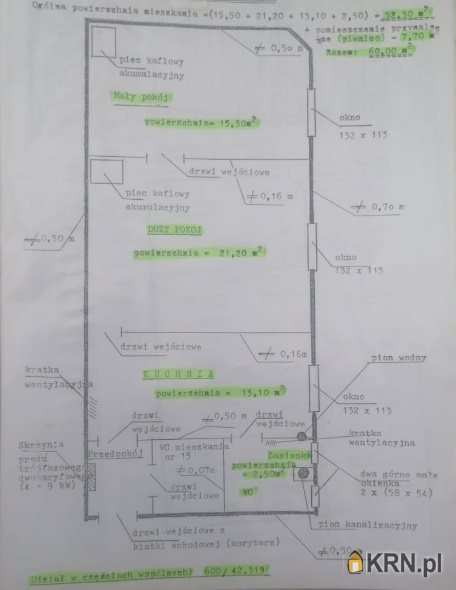 Ogólna powierzchnia mieszkania =(15,50 + 21,20 + 13,10 + 2,50) = 52,30 m²
+ pomieszczenie przynależ
ne (piwnica) = 7,70 m²
Razem: 60,00 m²
≠ 0,50 m
piec kaflowy
akumulacyjny
Mały pokój
powierzchnia= 15,50m²
okno
132 x 113
drzwi wejściowe
piec kaflowy
akumulacyjny
≠ 0,16 m
≠ 0,70 m
DUŻY POKÓJ
≠ 0,50 m
powierzchnia = 21,20 m²
okno
132 x 113
drzwi wejściowe
≠ 0,16m
pion wodny
kratka
wentylacyjna
KUCHNIA
powierzchnia = 13,10 m²
okno
132 x 113
drzwi
wejściowe
≠ 0,50 m
drzwi
wejściowe
kratka
wentylacyjna
Skrzynia
prądu
trójfazowego
Przedpokój
WC mieszkania
nr 13
≠ 0,07m
Łazienka
powierzchnia
= 2,50m²
WC
drzwi
wejściowe
dwa górne małe
okienka
2 x (58 x 54)
pion kanalizacyjny
drzwi wejściowe z
klatki schodowej (korytarz)
≠ 0,50 m
Udział w częściach wspólnych: 600/42.519
KRN.pl